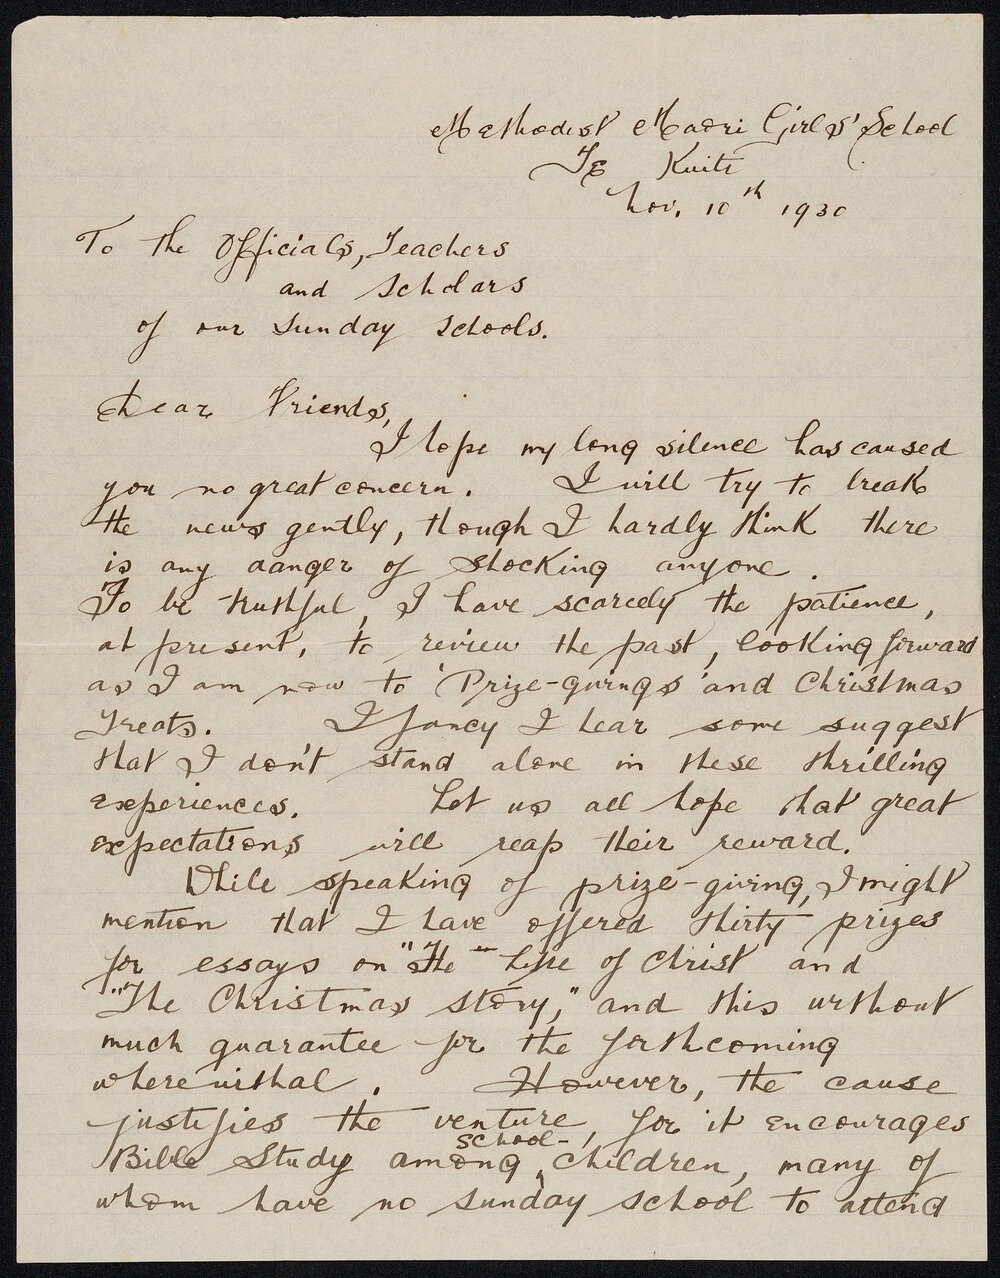 Methodist Maori Girls' School
Te Kuiti
Nov. 10th 1930
To the Officials, Teachers
and Scholars
of our Sunday Schools.
Dear Friends,
I hope my long silence has caused
you no great concern. I will try to break
the news gently, though I hardly think there
is any danger of shocking anyone.
To be truthful, I have scarcely the patience,
at present, to review the past, looking forward
as I am now to 'Prize-givings' and Christmas
Treats. I fancy I hear some suggest
that I don't stand alone in these thrilling
experiences. Let us all hope that great
expectations will reap their reward.
While speaking of prize-giving, I might
mention that I have offered thirty prizes
for essays on "The Life of Christ and
"The Christmas Story," and this without
much guarantee for the forthcoming
wherewithal. However, the cause
justifies the venture, for it encourages
Bible Study among school-children, many of
whom have no Sunday school to attend